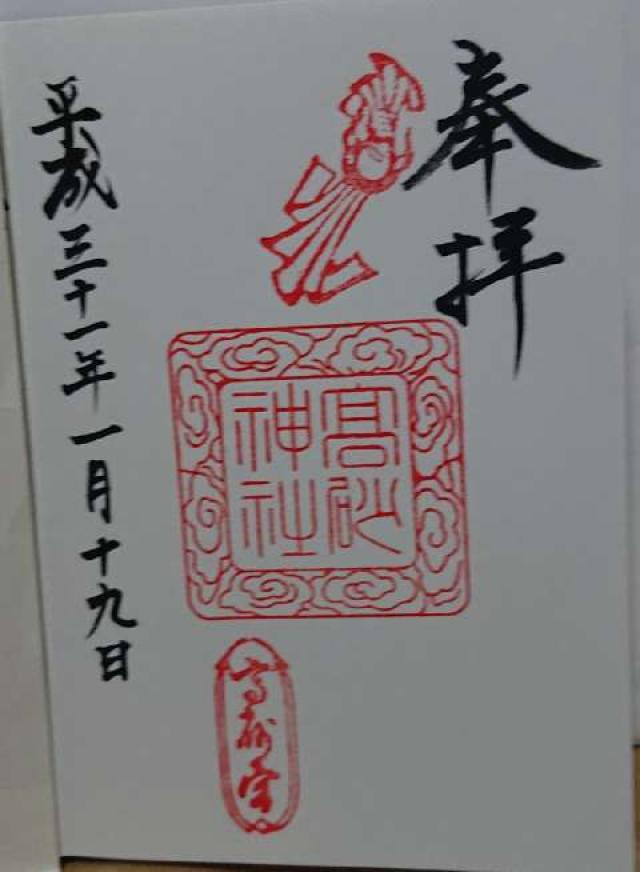 奉拝
髙砂
神社
平成三十一年一月十九日